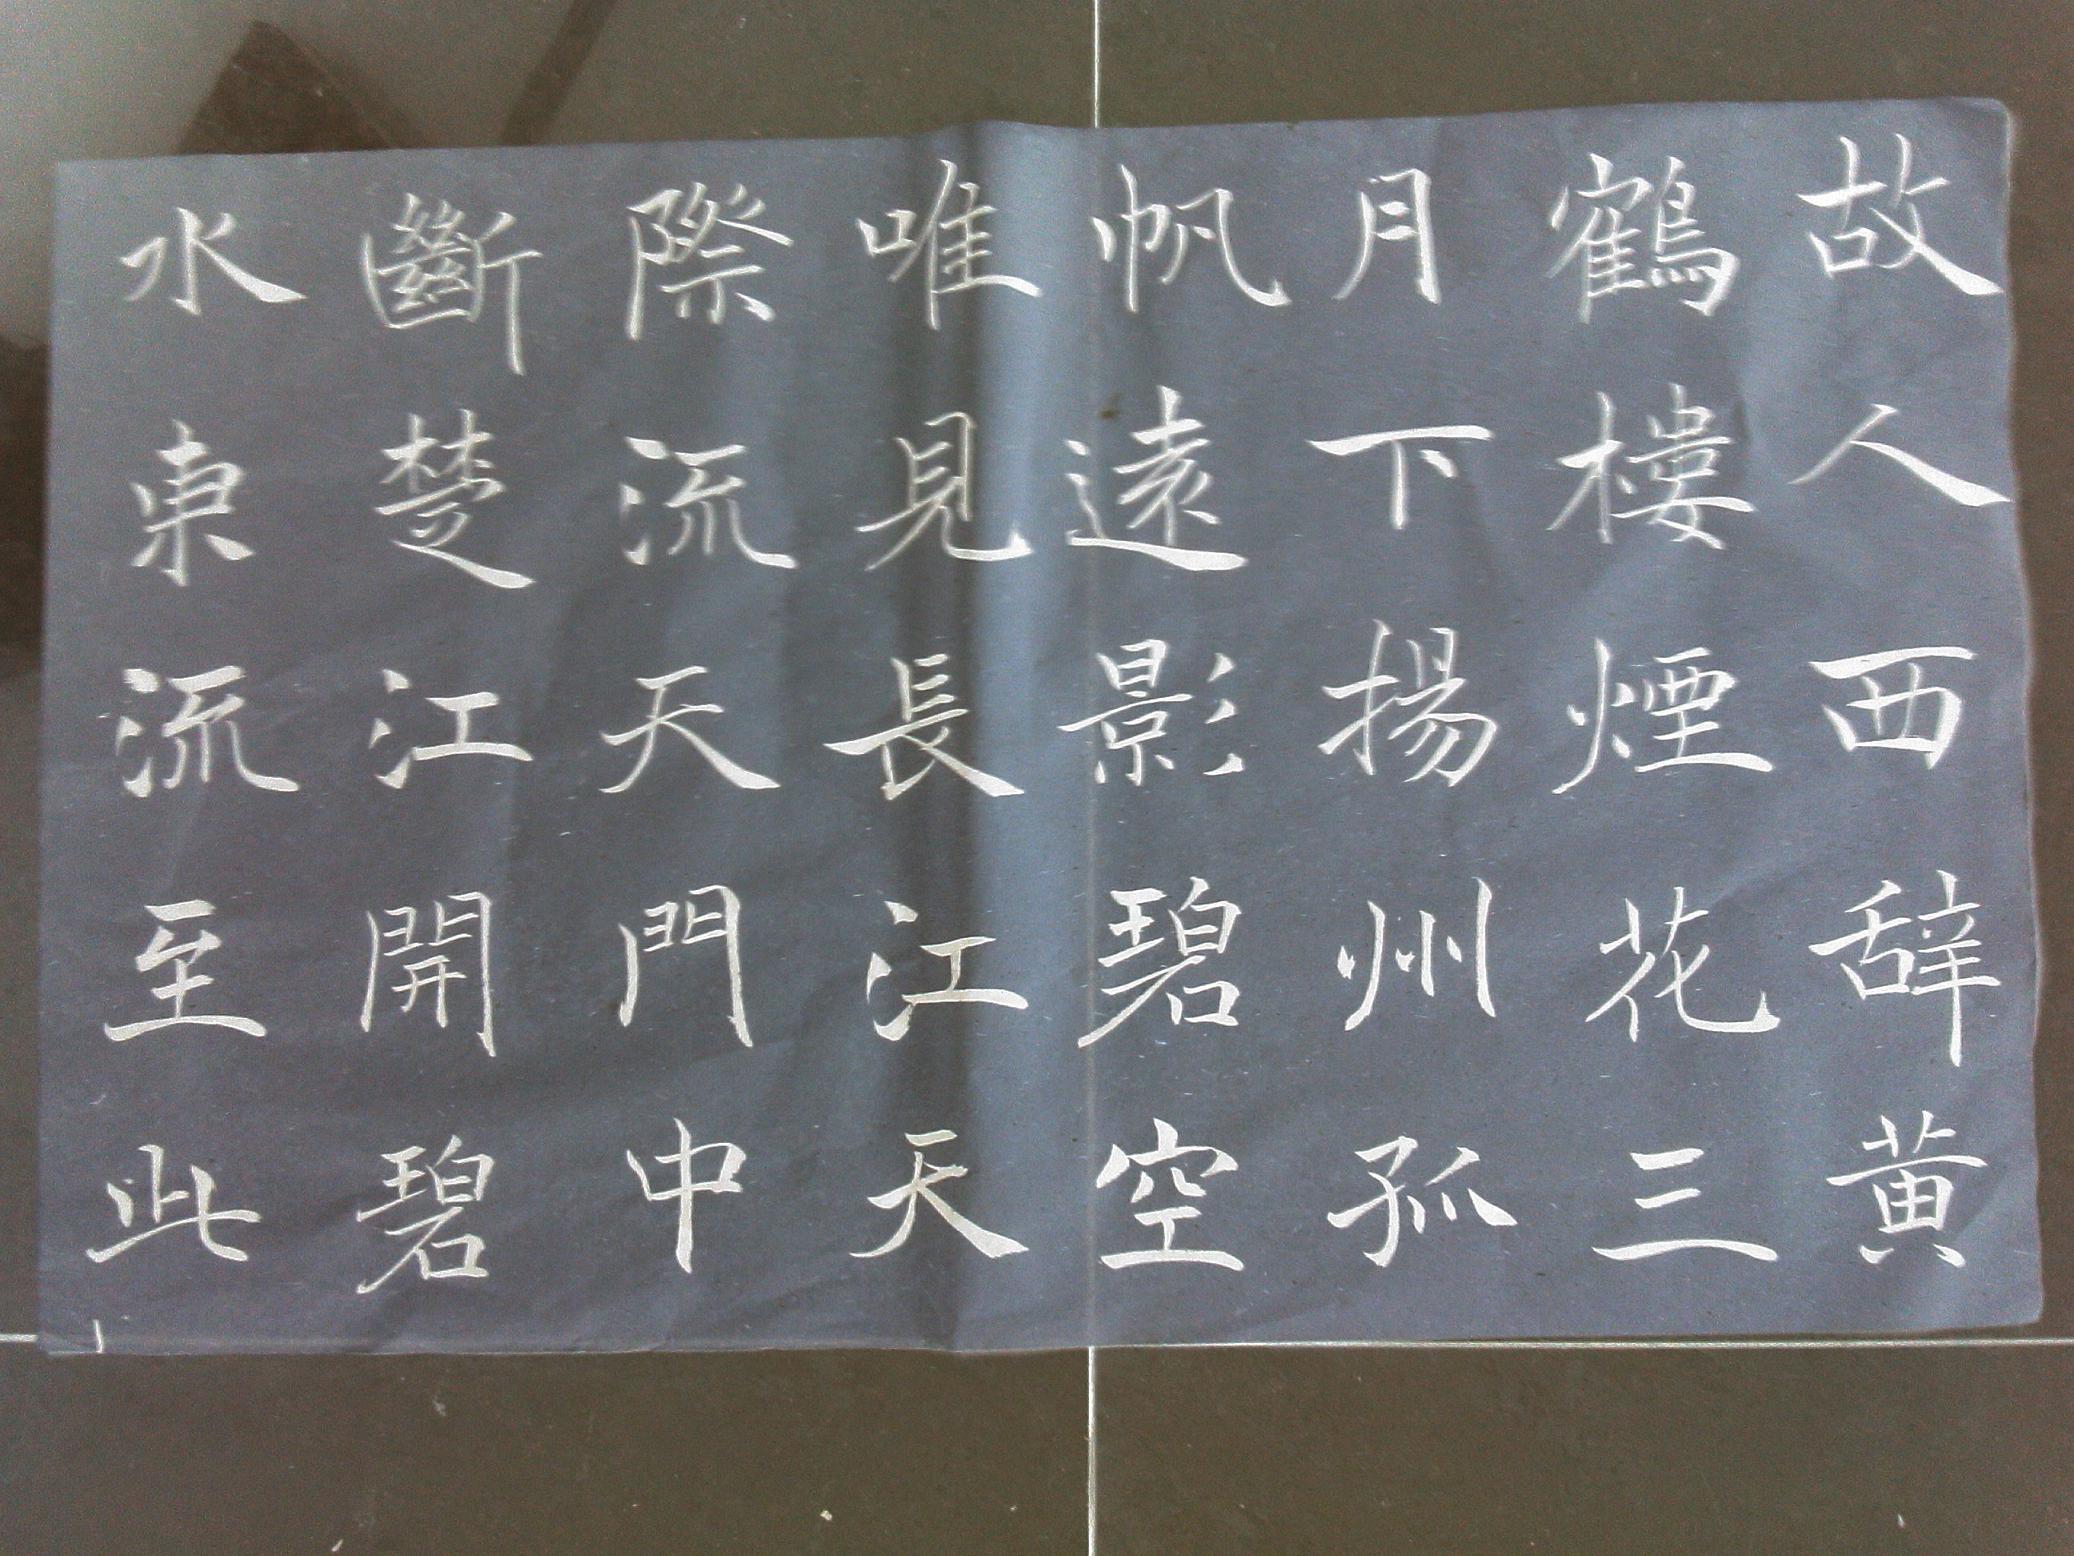 故人西辞黄
鶴樓煙花三
月下揚州孤
帆遠影碧空
唯見長江天
際流天門中
斷楚江開碧
水東流至此